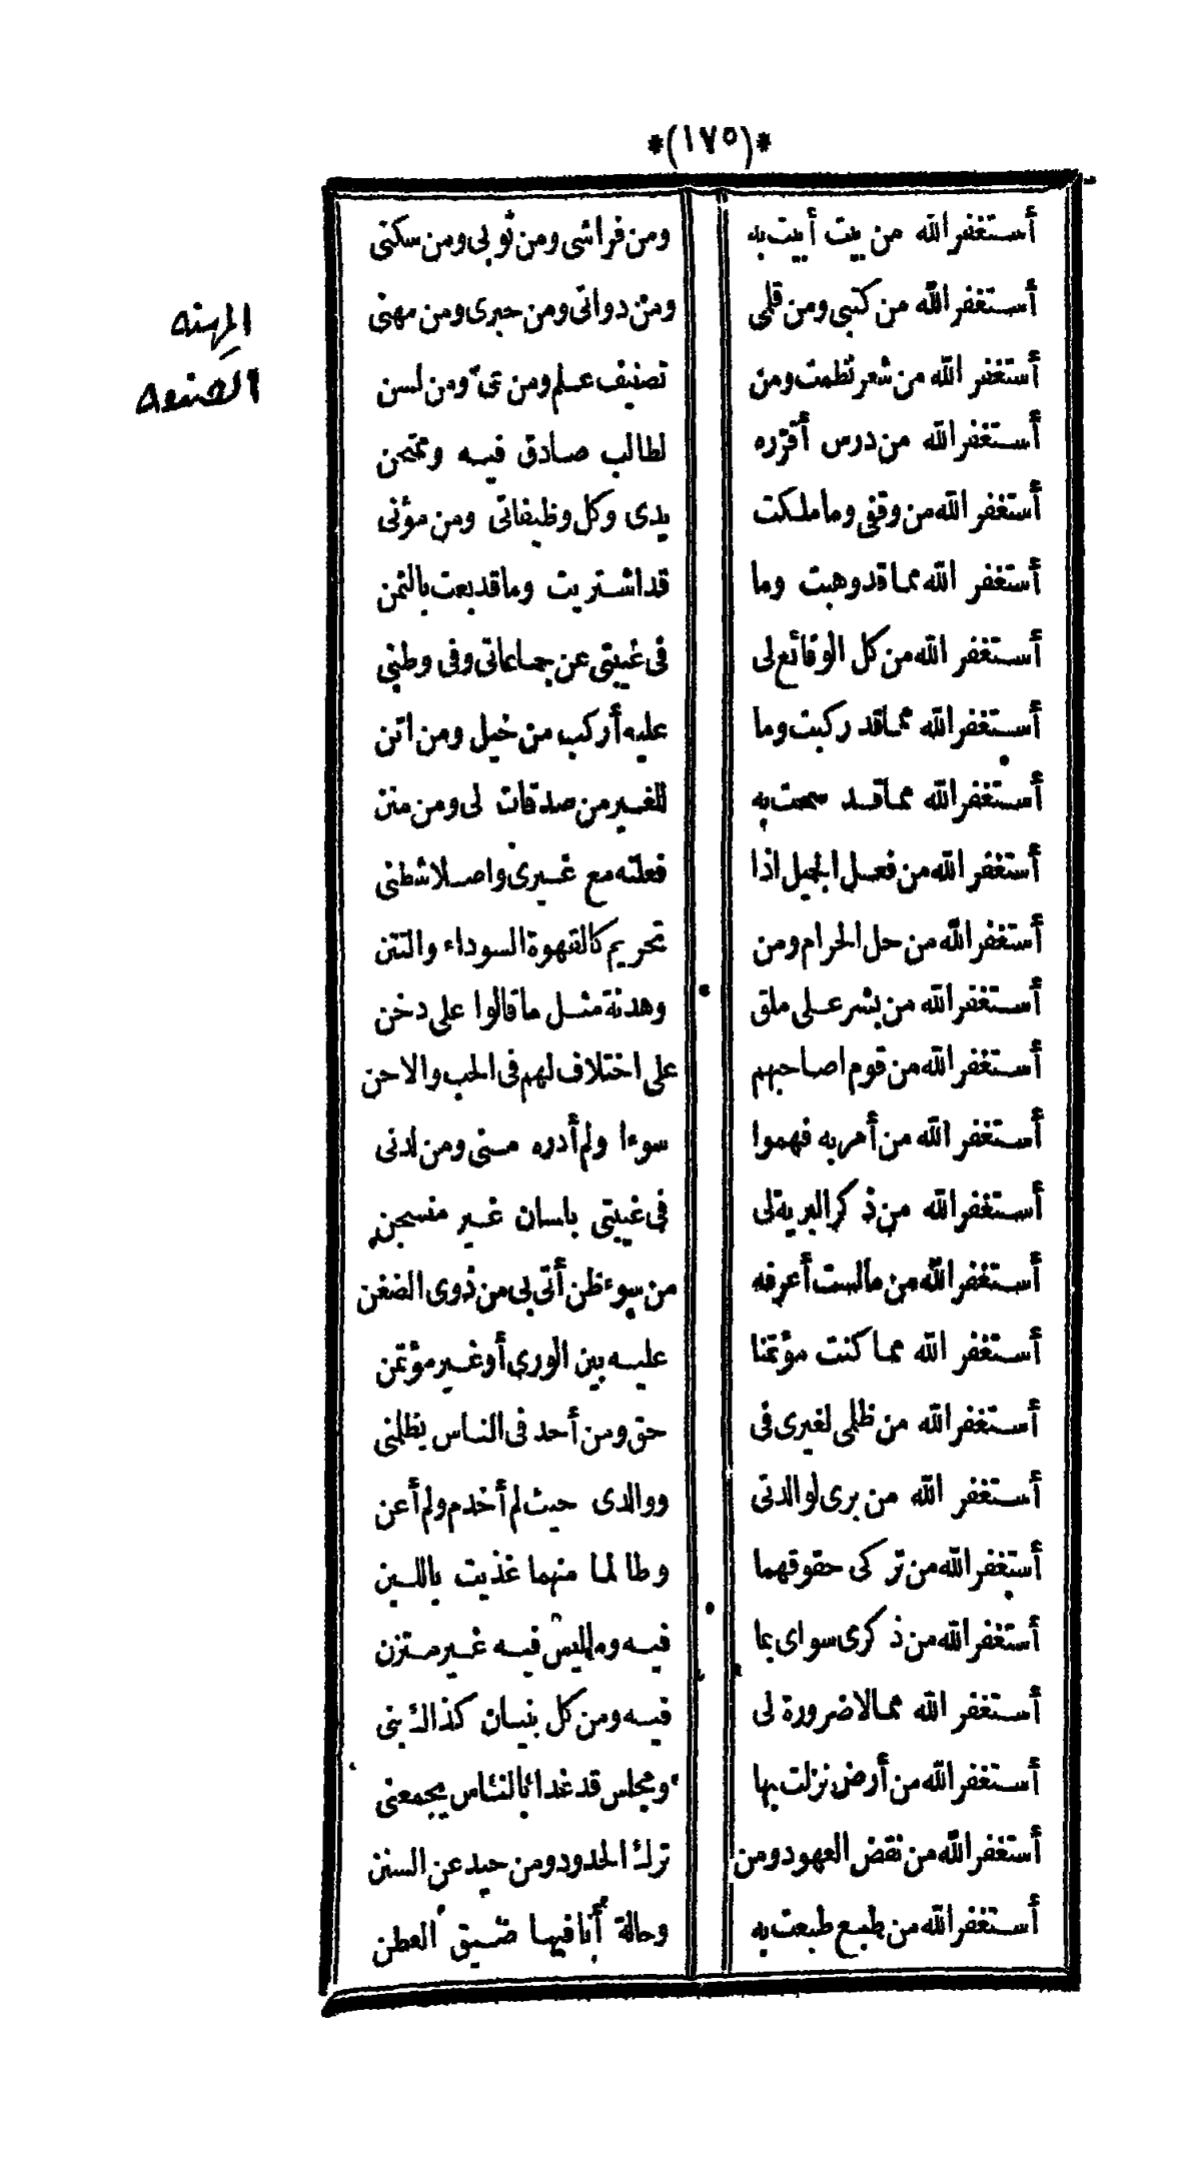 *(١٧٥)*
أستغفر الله من بيت أبيت به ومن فراشى ومن ثوبى ومن سكنى
أستغفر الله من كتبى ومن قلمى ومن دواتى ومن حبرى ومن مهنى
أستغفر الله من شعر نظمت ومن تصنيف علم ومن عى ومن لسن
أستغفر الله من درس أقرّره لطالب صادق فيه وممتحن
أستغفر الله من وقفى وما ملكت يدى وكل وظيفاتى ومن مؤنى
أستغفر الله مما قد وهبت وما قد اشتريت وما قد بعت بالثمن
أستغفر الله من كل الوقائع لى فى غيبتى عن جماعاتى وفى وطنى
أستغفر الله مما قد ركبت وما عليه أركب من خيل ومن اتن
أستغفر الله مما قد سمحت به للغير من صدقات لى ومن منن
أستغفر الله من فعل الجميل اذا فعلته مع غيرى واصلا شطنى
أستغفر الله من حل الحرام ومن تحريم كالقهوة السوداء والتتن
أستغفر الله من بشر على ملق وهدنة مثل ما قالوا على دخن
أستغفر الله من قوم اصاحبهم على اختلاف لهم فى الحب والاحن
أستغفر الله من أمر به فهموا سوءا ولم أدره منى ومن لدنى
أستغفر الله من ذكر البرية لى فى غيبتى بلسان غير منسجن
أستغفر الله من ما لست أعرفه من سوء ظن أتى بى من ذوى الضغن
أستغفر الله مما كنت مؤتمنا عليه بين الورى أو غير مؤتمن
أستغفر الله من ظلمى لغيرى فى حق ومن أحد فى الناس يظلمنى
أستغفر الله من برى لوالدتى ووالدى حيث لم أخدم ولم أعن
أستغفر الله من تركى حقوقهما وطالما منهما غذيت باللبن
أستغفر الله من ذكرى سواى بما فيه وما ليس فيه غير متزن
أستغفر الله مما لا ضرورة لى فيه ومن كل بنيان كذاك بنى
أستغفر الله من أرض نزلت بها ومجلس قد غدا بالناس يجمعنى
أستغفر الله من نقض العهود ومن ترك الحدود ومن حيد عن السنن
أستغفر الله من طبع طبعت به وحالة أنا فيها ضيق العطن
المهنه
الصنعه